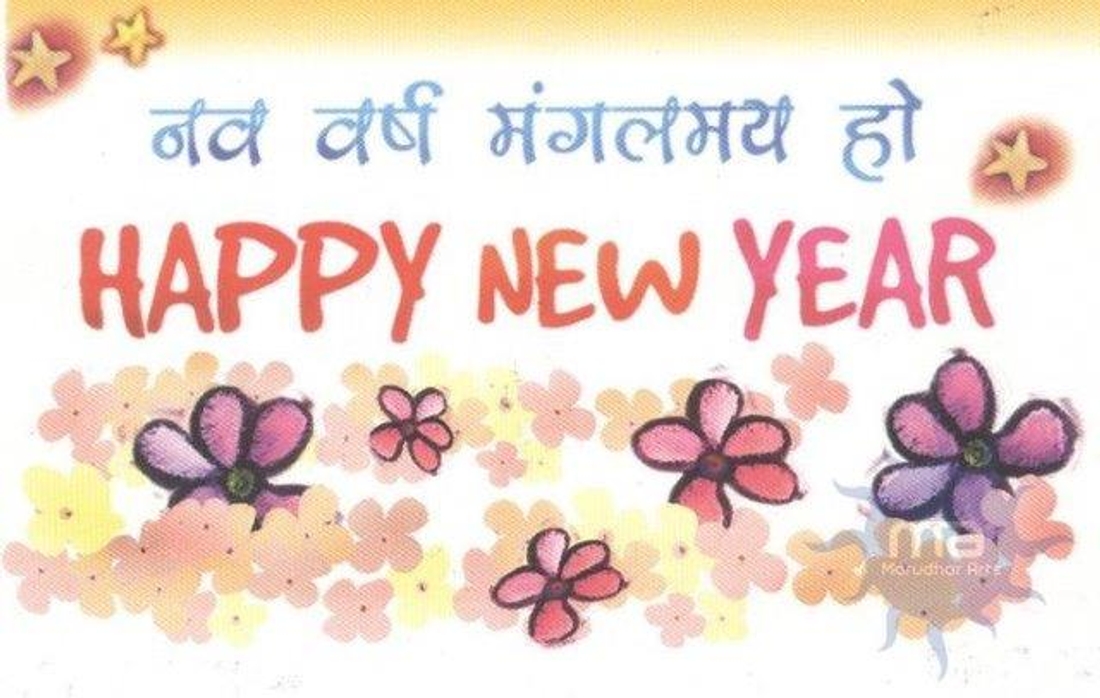 नव वर्ष मंगलमय हो
HAPPY NEW YEAR
ma
Marudhar Arts